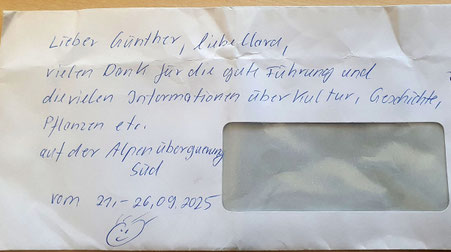 Lieber Günther, liebe Clara,
vielen Dank für die gute Führung und
die vielen Informationen über Kultur, Geschichte,
Pflanzen etc.
auf der Alpenüberquerung
Süd
vom 21.-26.09.2025